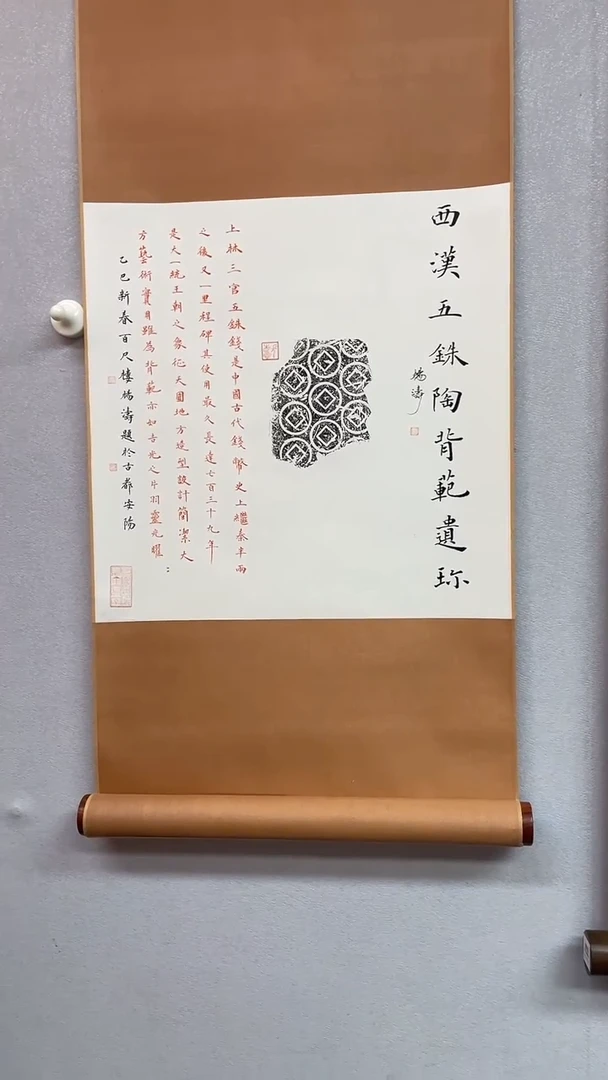 西漢五銖陶背範遺珍
上林三官五銖錢是中國古代錢幣史上繼秦半兩
之後又一里程碑其使用最久長達七百三十九年
是大一統王朝之象徵天圓地方造型設計簡潔大
方藝術實用雖為背範亦如吉光之片羽靈光曜
乙巳新春百尺樓 濤題於古都安陽